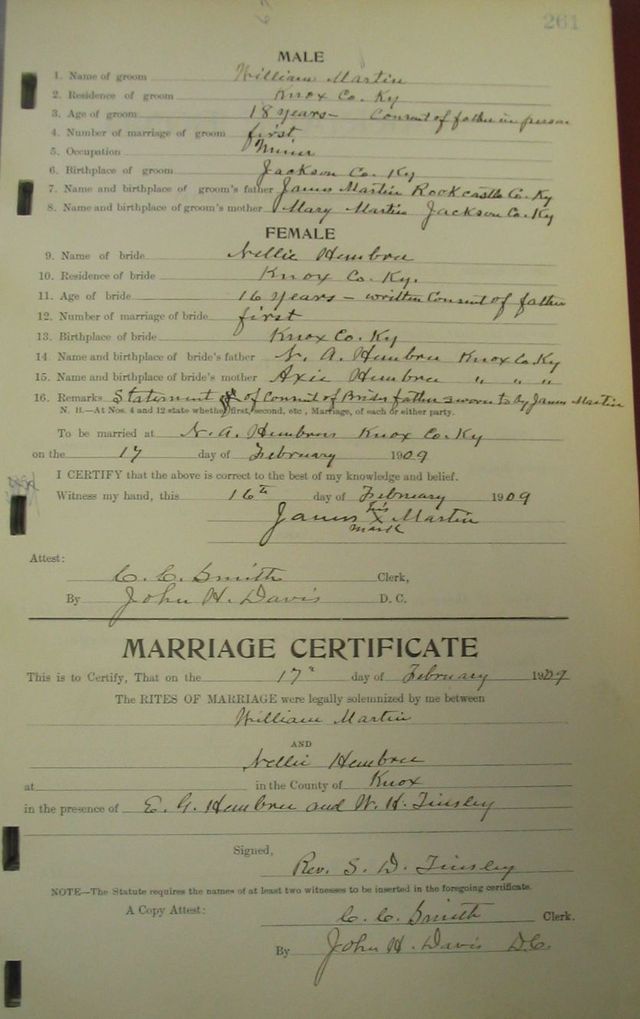 261
MALE
1. Name of groom William Martin
2. Residence of groom Knox Co. Ky
3. Age of groom 18 years – Consent of father in person
4. Number of marriage of groom first
5. Occupation Miner
6. Birthplace of groom Jackson Co. Ky
7. Name and birthplace of groom's father James Martin Rookcastle Co. Ky
8. Name and birthplace of groom's mother Mary Martin Jackson Co. Ky
FEMALE
9. Name of bride Nellie Hembree
10. Residence of bride Knox Co. Ky.
11. Age of bride 16 years – written Consent of father
12. Number of marriage of bride first
13. Birthplace of bride Knox Co. Ky
14. Name and birthplace of bride's father N. A. Hembree Knox Co. Ky
15. Name and birthplace of bride's mother Axie Hembree " " "
16. Remarks Statement of Consent of Brides father sworn to by James Martin
N. B.—At Nos. 4 and 12 state whether first, second, etc., Marriage, of each or either party.
To be married at N. A. Hembrees Knox Co. Ky
on the 17 day of February 1909
I CERTIFY that the above is correct to the best of my knowledge and belief.
Witness my hand, this 16th day of February 1909
his
James X Martin
mark
Attest:
C. C. Smith Clerk,
By John H. Davis D. C.
MARRIAGE CERTIFICATE
This is to Certify, That on the 17" day of February 1909
The RITES OF MARRIAGE were legally solemnized by me between
William Martin
AND
Nellie Hembree
at in the County of Knox
in the presence of E. G. Hembree and W. H. Tinsley
Signed,
Rev. S. D. Tinsley
NOTE—The Statute requires the names of at least two witnesses to be inserted in the foregoing certificate.
A Copy Attest:
C. C. Smith Clerk.
By John H. Davis D.C.